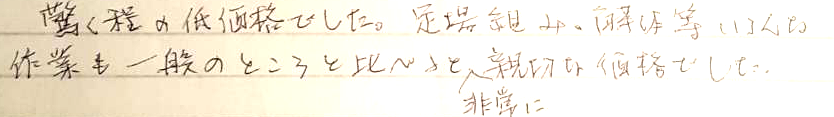 驚く程の低価格でした。足場組み、解体等いろんな
作業も一般のところと比べると、親切な価格でした。
非常に